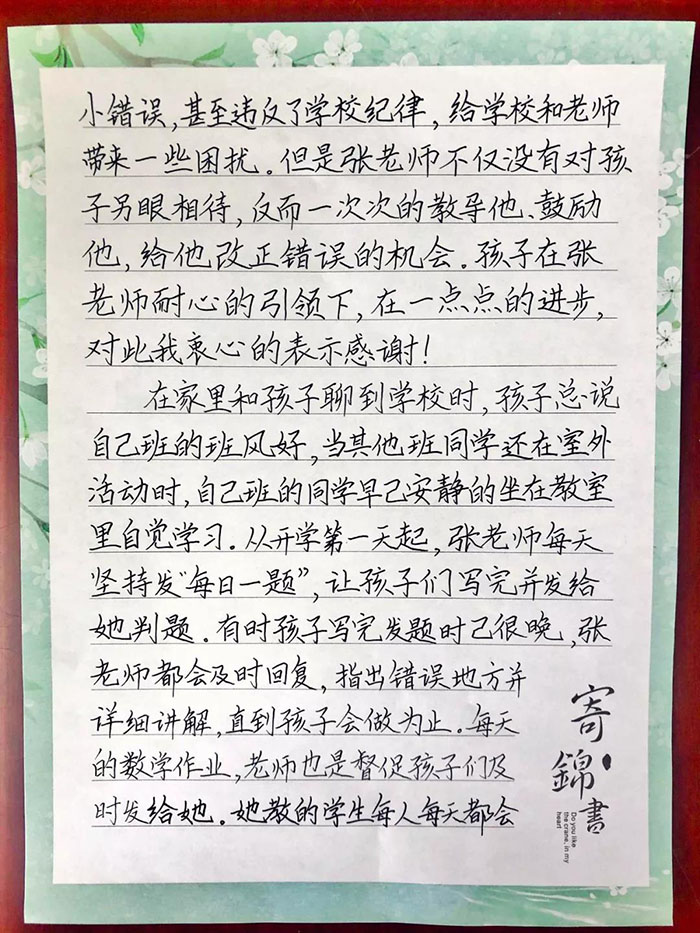 小错误,甚至违反了学校纪律,给学校和老师
带来一些困扰。但是张老师不仅没有对孩
子另眼相待,反而一次次的教导他、鼓励
他,给他改正错误的机会。孩子在张
老师耐心的引领下,在一点点的进步,
对此我衷心的表示感谢!
在家里和孩子聊到学校时,孩子总说
自己班的班风好,当其他班同学还在室外
活动时,自己班的同学早已安静的坐在教室
里自觉学习。从开学第一天起,张老师每天
坚持发“每日一题”,让孩子们写完并发给
她判题。有时孩子写完发题时已很晚,张
老师都会及时回复,指出错误地方并
详细讲解,直到孩子会做为止。每天
的数学作业,老师也是督促孩子们及
时发给她。她教的学生每人每天都会
寄錦書
Do you like
the crane, in my
heart